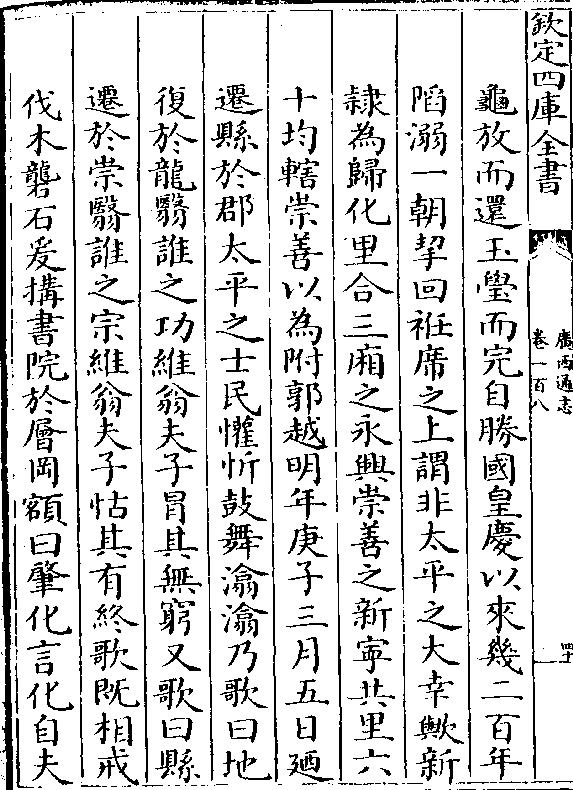 欽定四庫全書
廣西通志
卷一百八
四十
龜放而還玉璺而完自勝國皇慶以來幾二百年
陷溺一朝挈回袵席之上謂非太平之大幸歟新
隸為歸化里合三廂之永興崇善之新寜共里六
十均轄崇善以為附郭越明年庚子三月五日廼
遷縣於郡太平之士民懽忻鼓舞瀹瀹乃歌曰地
復於龍翳誰之功維翁夫子冐其無窮又歌曰縣
遷於崇翳誰之宗維翁夫子怙其有終歌既相戒
伐木礱石爰搆書院於層岡額曰肇化言化自夫